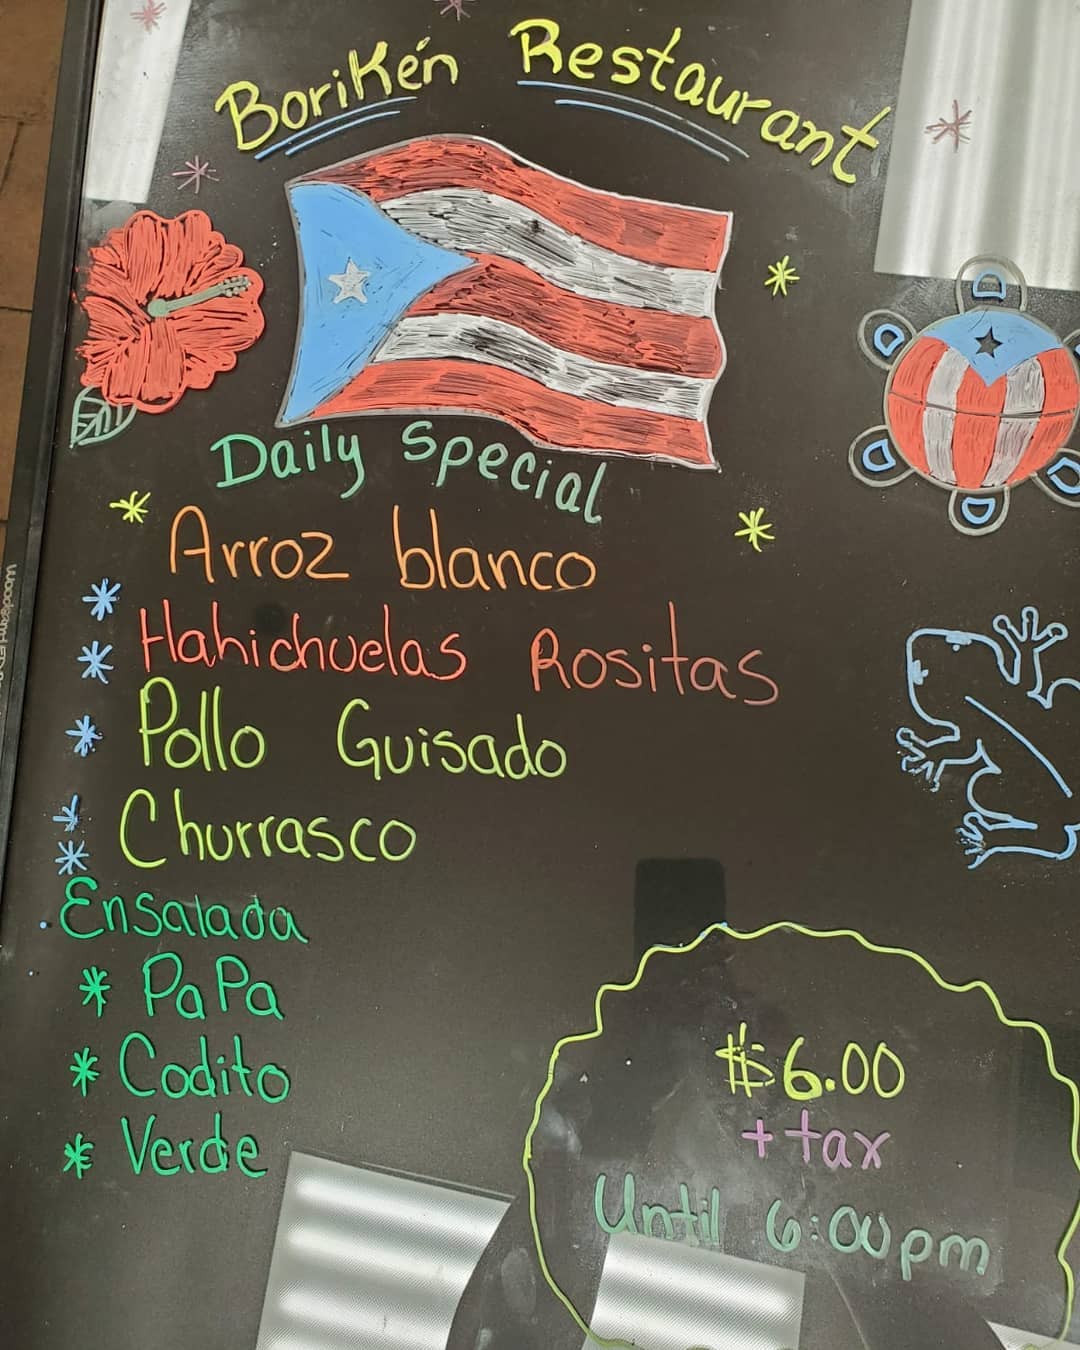 BoriKén Restaurant
Daily Special
Arroz blanco
Hahichuelas Rositas
Pollo Guisado
Churrasco
Ensalada
* PaPa
* Codito
* Verde
$6.00
+ tax
Until 6:00pm